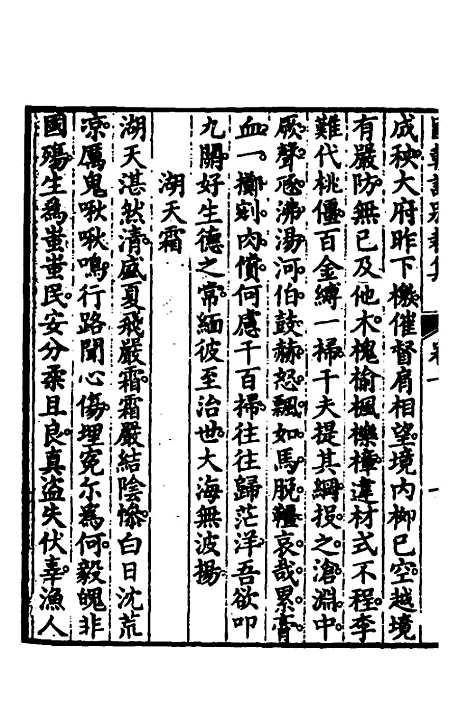 成秧大府昨下檄催督肩相望境内柳已空越境
有嚴防無已及他木槐榆楓櫟樟違材式不程李
難代桃僵百金縛一掃千夫提其綱投之滄淵中
厥聲迺沸湯河伯鼓赫怒飄如馬脫韁哀哉累膏
血一擲剜肉償何慮千百掃往往歸茫洋吾欲叩
九關好生德之常緬彼至治世大海無波揚
湖天霜
湖天湛然清盛夏飛嚴霜霜嚴結陰慘白日沈荒
凉厲鬼啾啾鳴行路聞心傷埋寃尔為何毅魄非
國殤生為蚩蚩民安分柔且良真盜失伏辜漁人